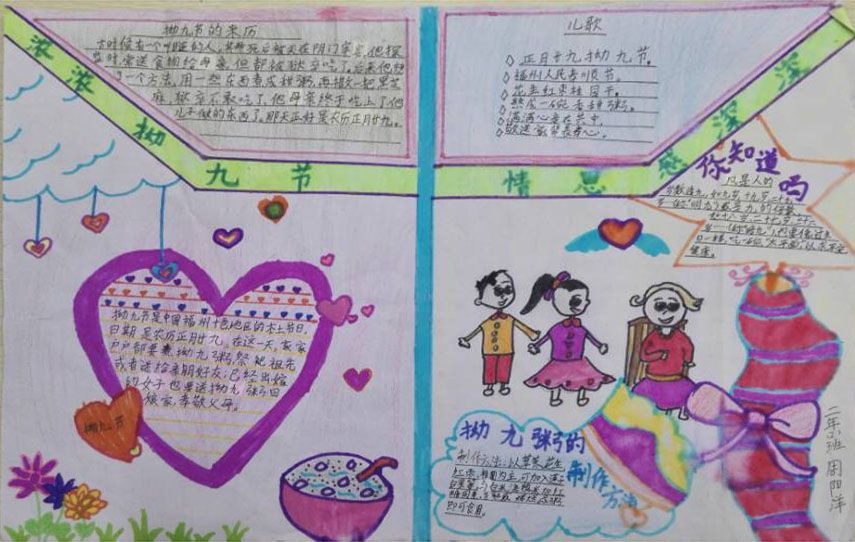 浓浓拗九节
情思感深深
拗九节的来历
古时候有一个叫目连的人,其母死后被关在阴间牢房,他探
监时,常送食物给母亲,但都被狱卒吃了。后来他想
了一个方法,用一些东西煮成甜粥,再撒一把黑芝
麻,狱卒不敢吃了,他母亲终于吃上了他
儿子做的东西了。那天正好是农历正月廿九。
儿歌
正月廿九拗九节。
福州人民孝顺节。
花生红枣桂圆干。
熬成一碗香甜粥。
满满心意在其中
敬送家里长辈心。
你知道吗
凡是人的
健康。
拗九节是中国福州十邑地区的本土节日,
日期是农历正月廿九。在这一天,家家
户户都要煮拗九粥,祭祀祖先
或者送给亲朋好友;已经出嫁
的女子也要送拗九粥回
娘家,孝敬父母。
拗九节
拗九粥的
制作方法
即可食用。
二年 班 周阳洋